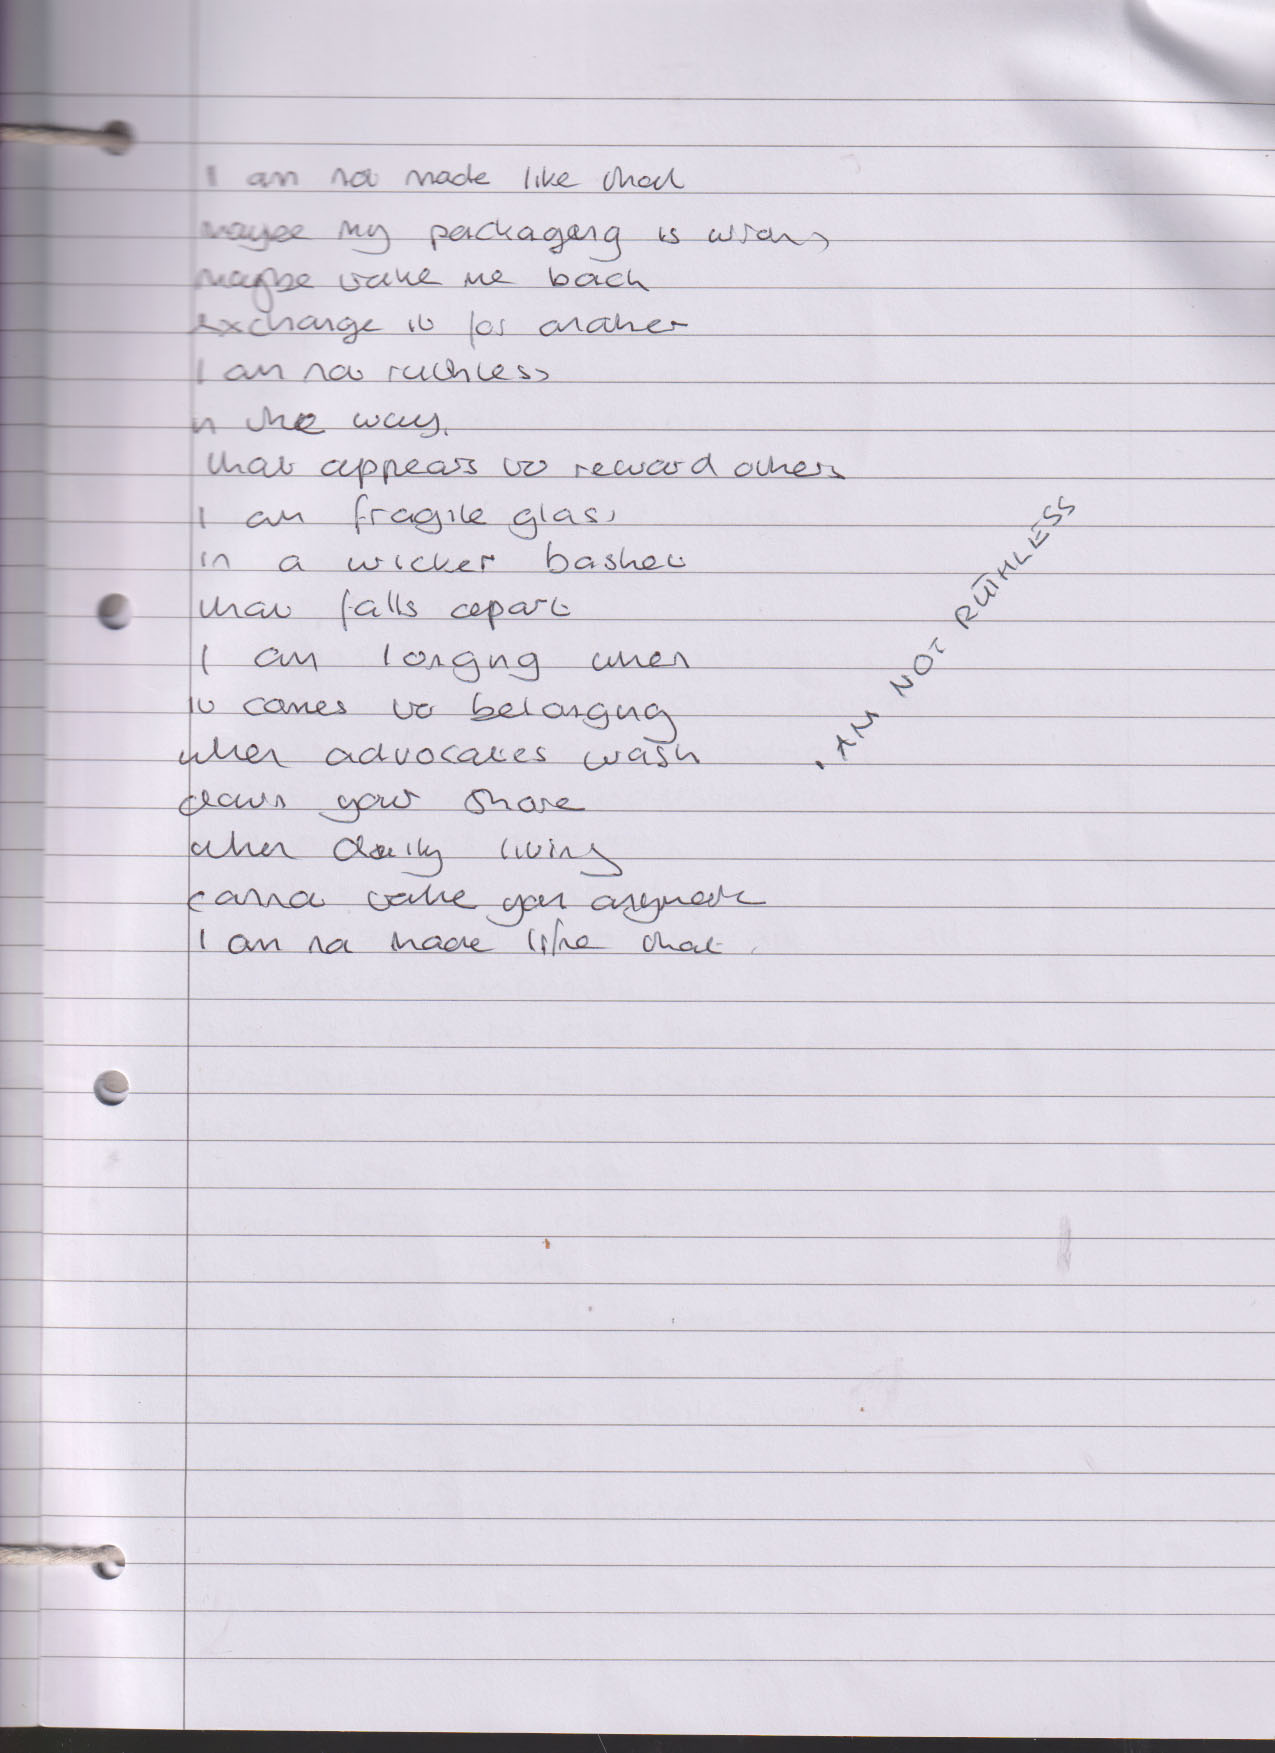 I am not made like that
maybe my packaging is wrong
maybe take me back
exchange it for another
I am not ruthless
in the way
that appears to reward others
I am fragile glass
in a wicker basket
that falls apart
I am longing when
it comes to belonging
when advocates wash
down your shore
when daily living
cannot take you anymore
I am not made like that.
I AM NOT RUTHLESS